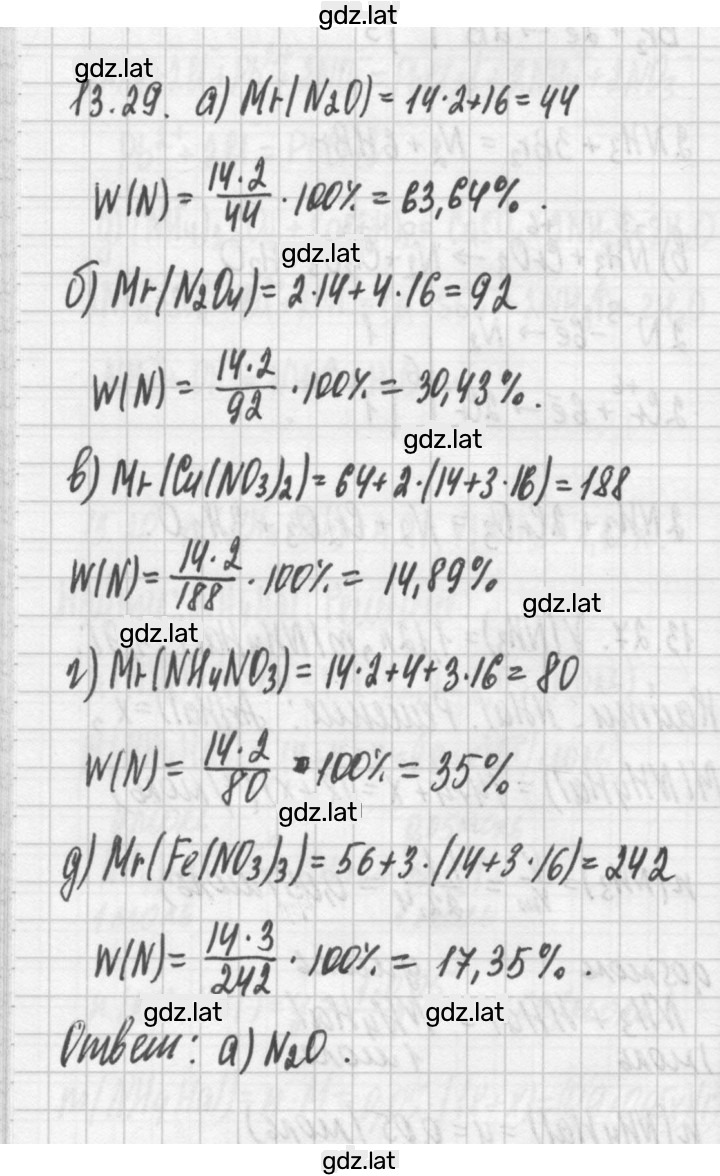 gdz.lat
gdz.lat
13.29. а) Mr(N2O) = 14·2+16 = 44
W(N) = 14·2/44 · 100% = 63,64%.
gdz.lat
б) Mr(N2O4) = 2·14+4·16 = 92
W(N) = 14·2/92 · 100% = 30,43%.
gdz.lat
в) Mr(Cu(NO3)2) = 64+2·(14+3·16) = 188
W(N) = 14·2/188 · 100% = 14,89%
gdz.lat
gdz.lat
г) Mr(NH4NO3) = 14·2+4+3·16 = 80
W(N) = 14·2/80 · 100% = 35%
gdz.lat
д) Mr(Fe(NO3)3) = 56+3·(14+3·16) = 242
W(N) = 14·3/242 · 100% = 17,35%.
gdz.lat gdz.lat
Ответ: а) N2O.
gdz.lat